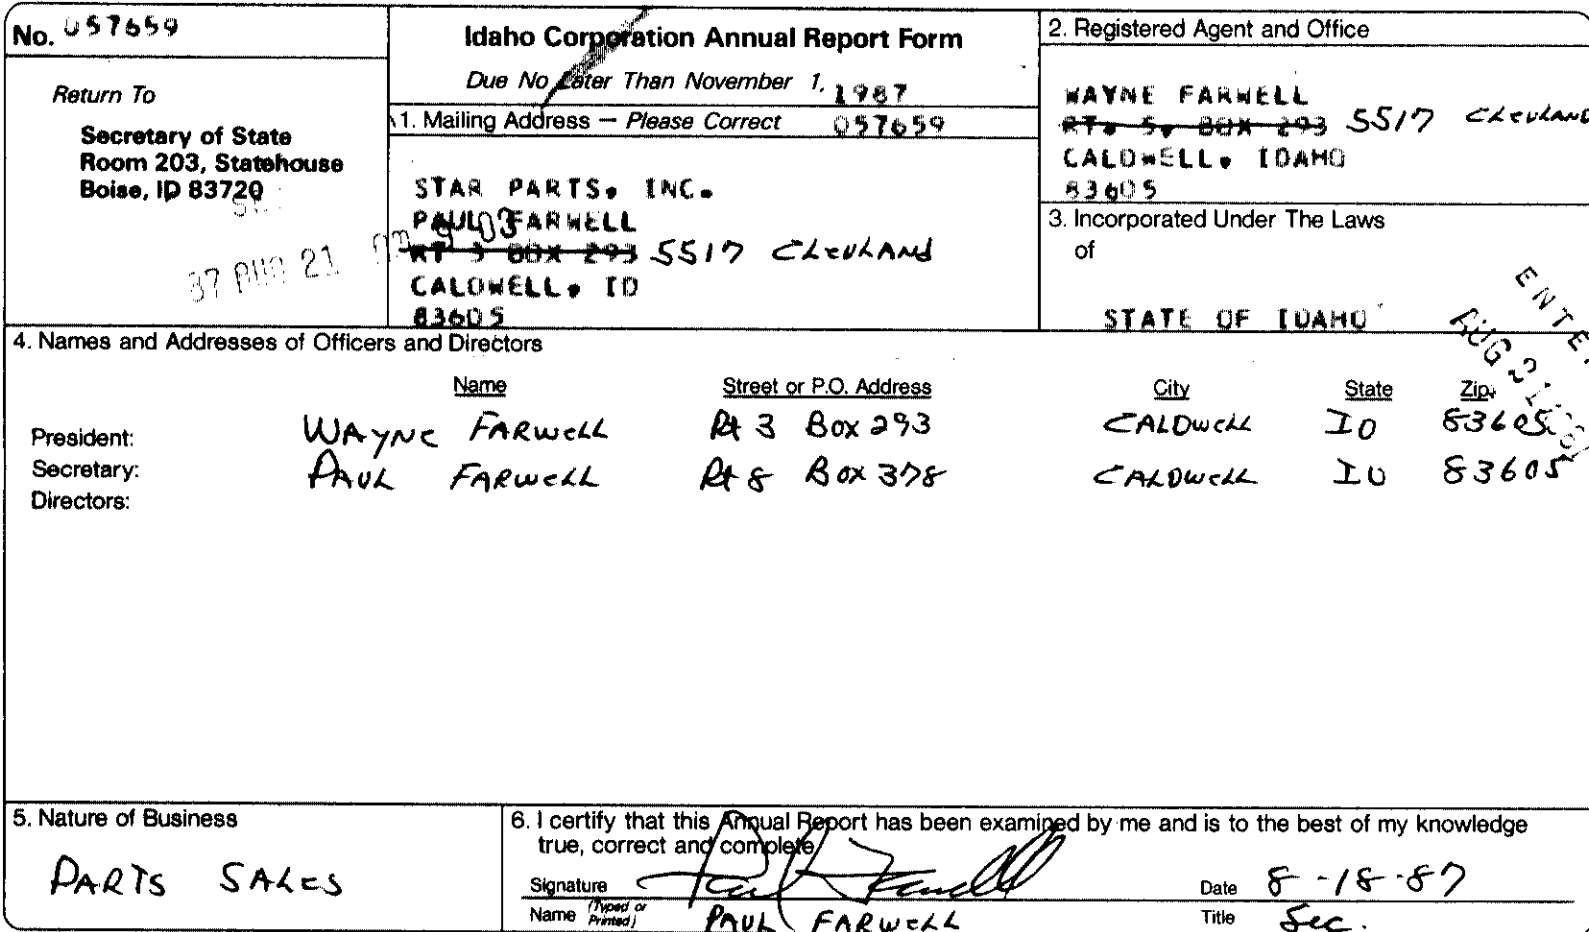 No. 057659
Return To
Secretary of State
Room 203, Statehouse
Boise, ID 83720
AUG 21 9 03
Idaho Corporation Annual Report Form
Due No Later Than November 1, 1987
1. Mailing Address — Please Correct 057659
STAR PARTS, INC.
PAUL FARWELL
RT 3 BOX 293 5517 CLEVLAND
CALDWELL, ID
83605
2. Registered Agent and Office
WAYNE FARWELL
RT. 5, BOX 293 5517 CLEVLAND
CALDWELL, IDAHO
83605
3. Incorporated Under The Laws
of
STATE OF IDAHO
AUG 21
4. Names and Addresses of Officers and Directors
Name Street or P.O. Address City State Zip
President: WAYNE FARWELL Rt 3 Box 293 CALDWELL ID 83605
Secretary: PAUL FARWELL Rt 8 Box 378 CALDWELL ID 83605
Directors:
5. Nature of Business
PARTS SALES
6. I certify that this Annual Report has been examined by me and is to the best of my knowledge
true, correct and complete
Signature Paul Farwell Date 8-18-87
Name (Typed or Printed) PAUL FARWELL Title Sec.